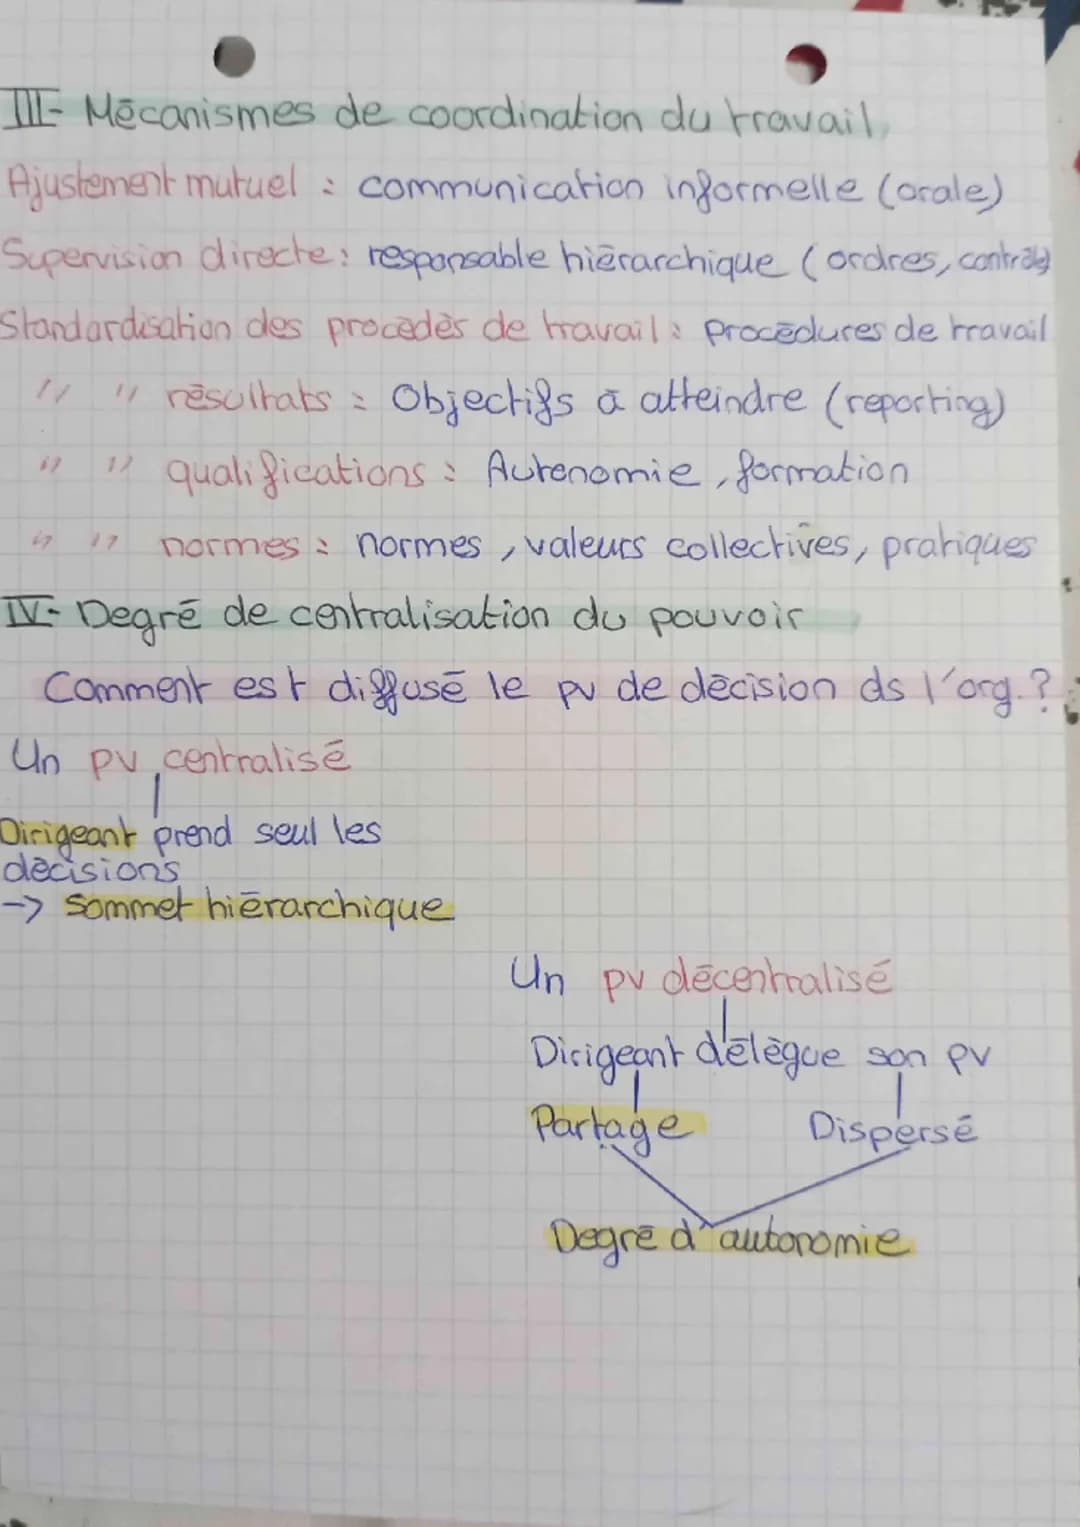 III- Mécanismes de coordination du travail
Ajustement mutuel : communication informelle (orale)
Supervision directe : responsable hiérarchique (ordres, contrôle)
Standardisation des procédés de travail : Procédures de travail
" " résultats : Objectifs à atteindre (reporting)
" " qualifications : Autonomie, formation
" " normes : normes, valeurs collectives, pratiques
IV- Degré de centralisation du pouvoir
Comment est diffusé le pv de décision ds l'org.?
Un pv centralisé
Dirigeant prend seul les
décisions
-> Sommet hiérarchique
Un pv décentralisé
Dirigeant délègue son pv
Partage Dispersé
Degré d'autonomie